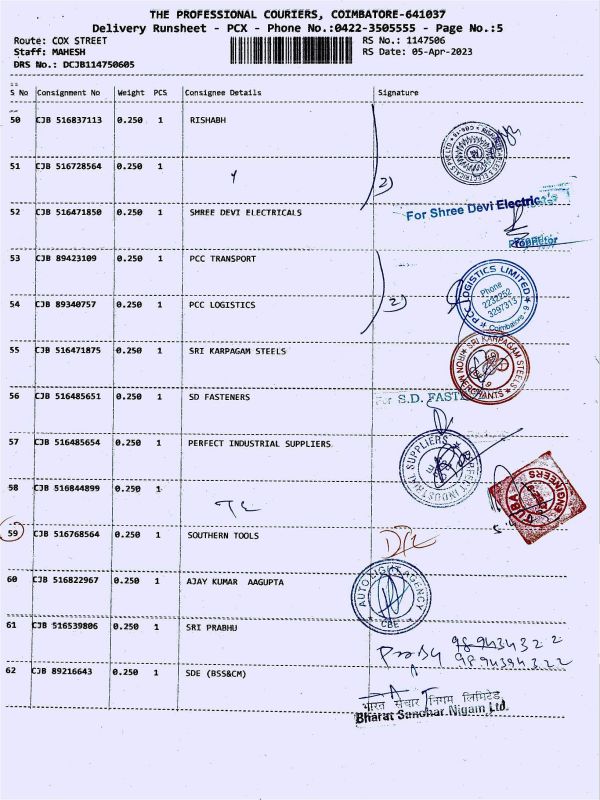 THE PROFESSIONAL COURIERS, COIMBATORE-641037
Delivery Runsheet - PCX - Phone No.:0422-3505555 - Page No.:5
Route: COX STREET RS No.: 1147506
Staff: MAHESH RS Date: 05-Apr-2023
DRS No.: DCJB114750605
S No Consignment No Weight PCS Consignee Details Signature
50 CJB 516837113 0.250 1 RISHABH
51 CJB 516728564 0.250 1
2)
52 CJB 516471850 0.250 1 SHREE DEVI ELECTRICALS For Shree Devi Electricals
Proprietor
53 CJB 89423109 0.250 1 PCC TRANSPORT
54 CJB 89340757 0.250 1 PCC LOGISTICS 2)
PCC LOGISTICS LIMITED
Phone
2232252
3297313
Coimbatore - 9
55 CJB 516471875 0.250 1 SRI KARPAGAM STEELS
SRI KARPAGAM STEELS
IRON MERCHANTS
56 CJB 516485651 0.250 1 SD FASTENERS For S.D. FASTE
57 CJB 516485654 0.250 1 PERFECT INDUSTRIAL SUPPLIERS
PERFECT INDUSTRIAL SUPPLIERS
58 CJB 516844899 0.250 1
ENGINEERS
59 CJB 516768564 0.250 1 SOUTHERN TOOLS
60 CJB 516822967 0.250 1 AJAY KUMAR AAGUPTA
AUTO LIGHT AGENCY
CBE
61 CJB 516539806 0.250 1 SRI PRABHU
9894394322
62 CJB 89216643 0.250 1 SDE (BSS&CM)
भारत संचार निगम लिमिटेड
Bharat Sanchar Nigam Ltd.